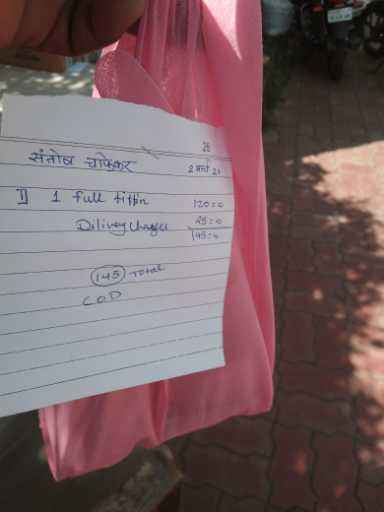 26
संतोष चाफेकर
2 मार्च 21
1) 1 full tiffin 120=0
Dilivey Charges 25=0
145=0
145 Total
COD